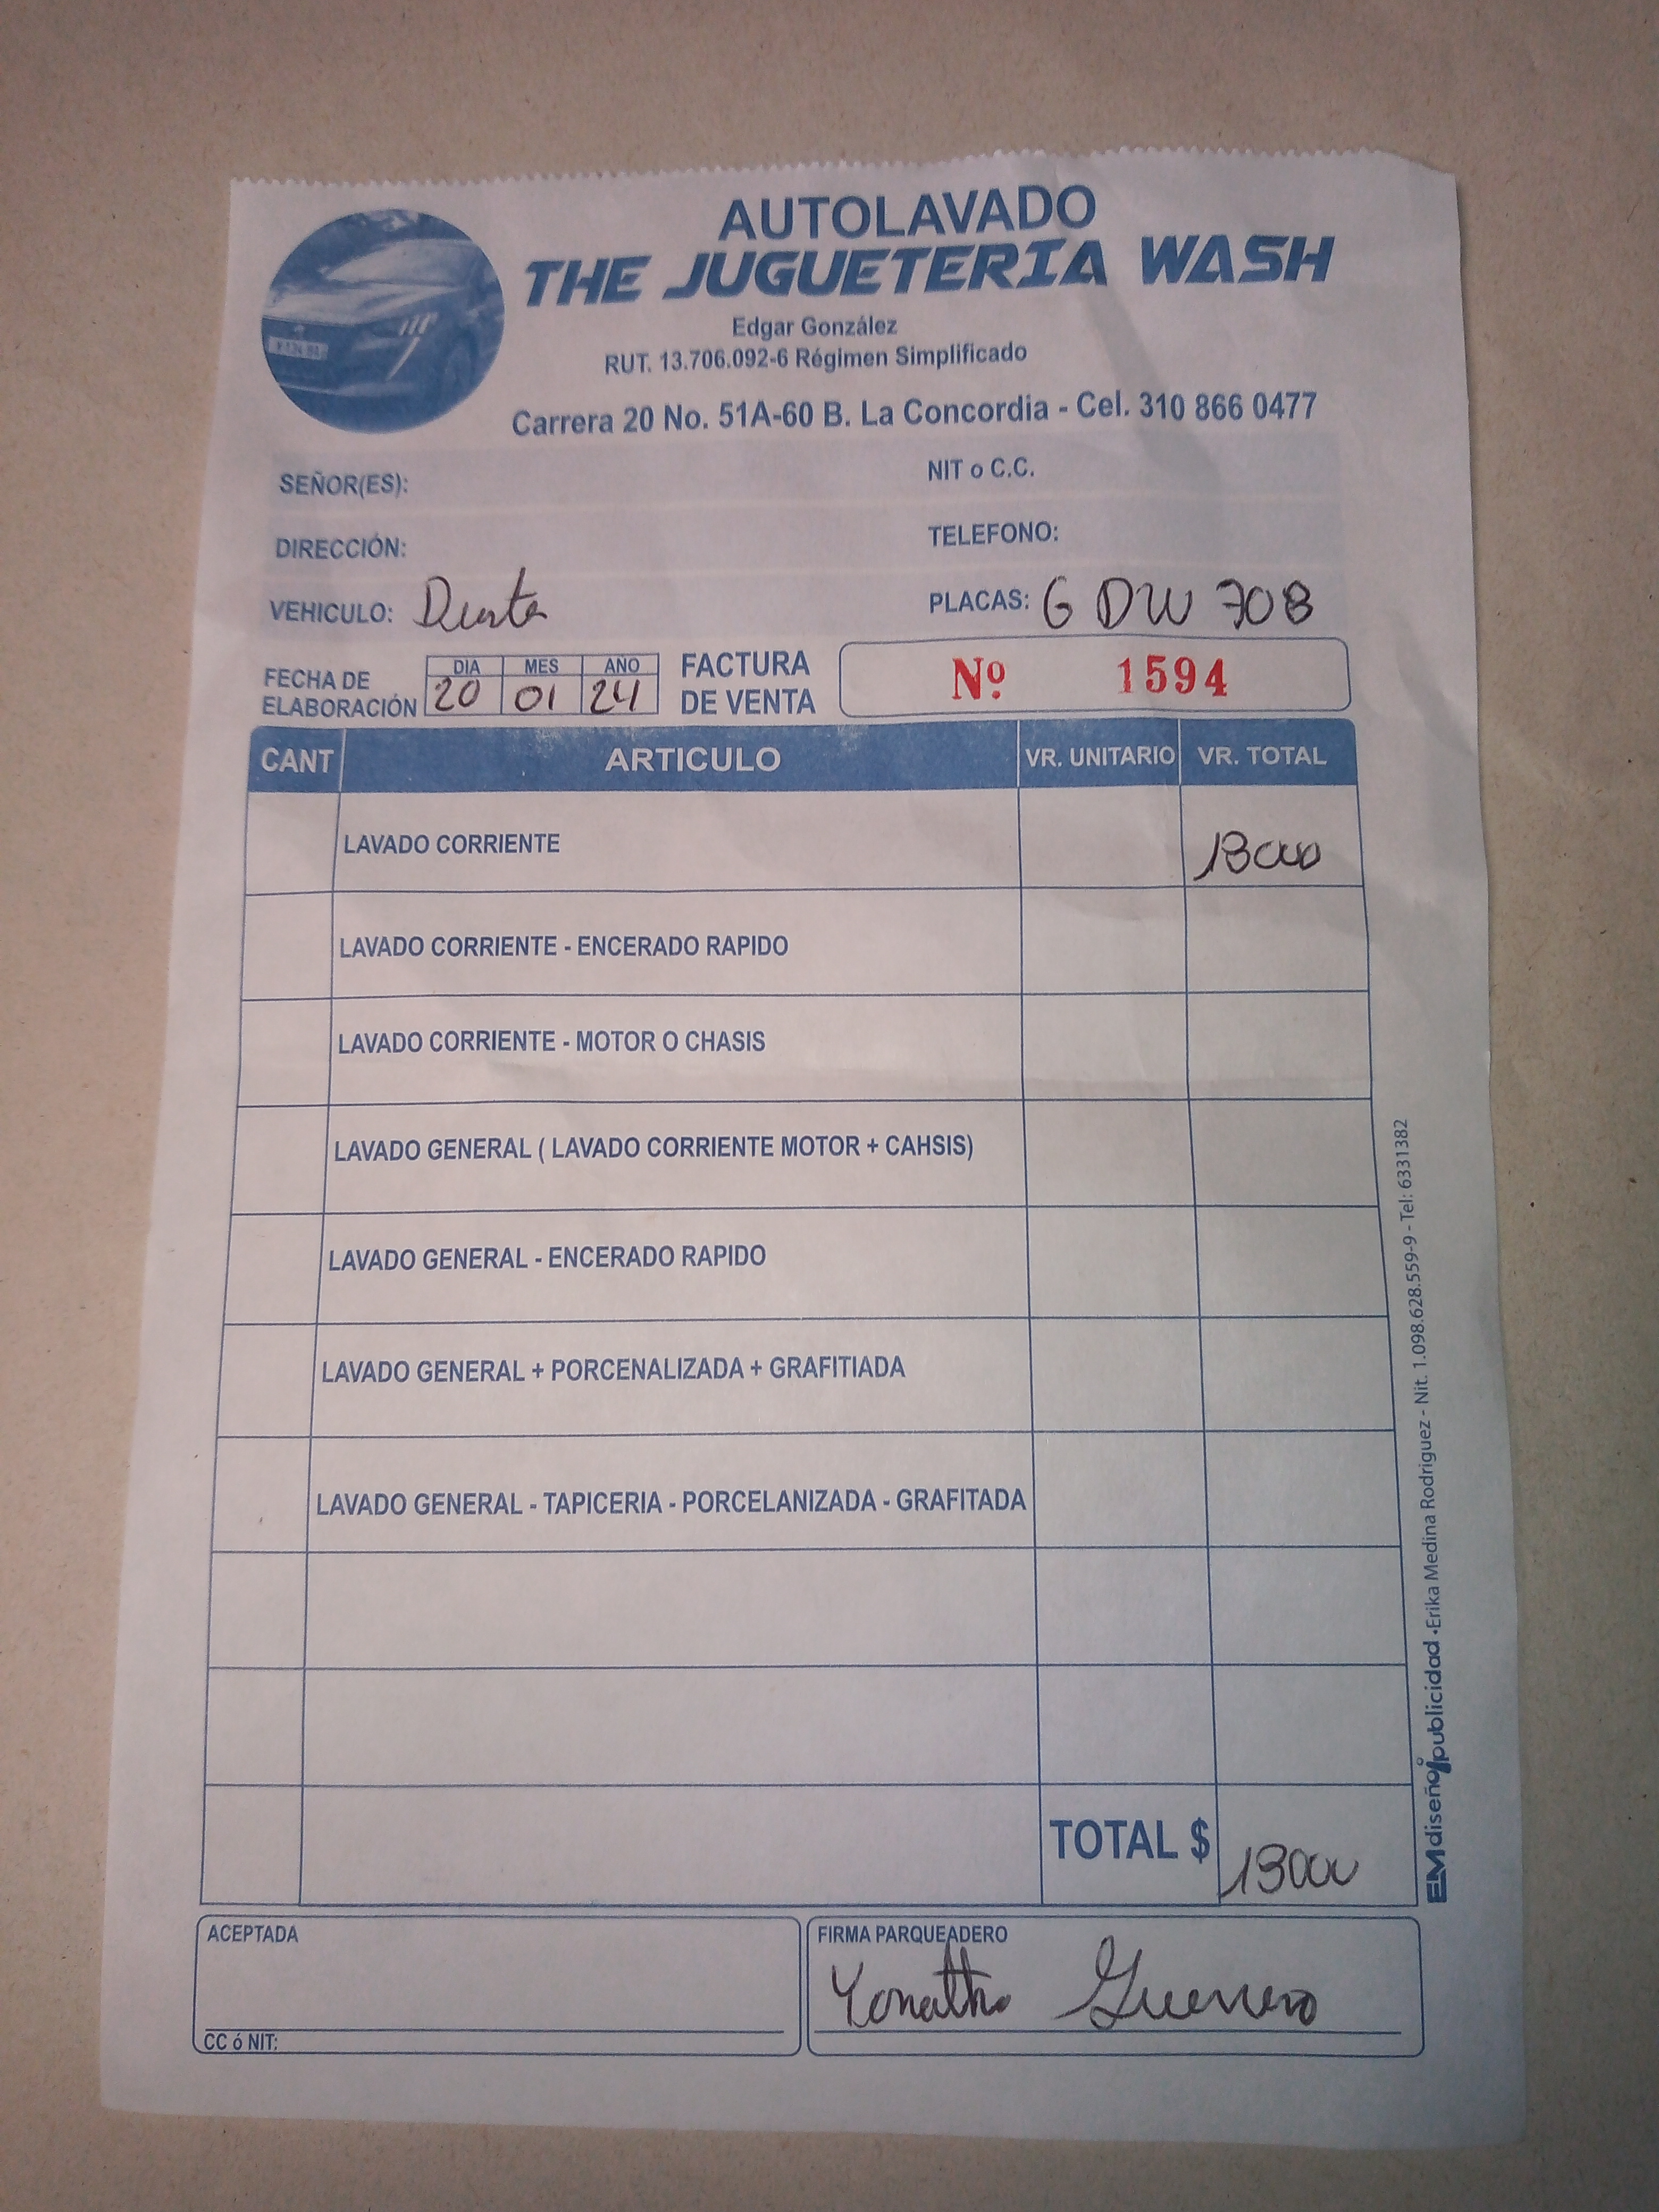 AUTOLAVADO
THE JUGUETERIA WASH
Edgar González
RUT. 13.706.092-6 Régimen Simplificado
Carrera 20 No. 51A-60 B. La Concordia - Cel. 310 866 0477
SEÑOR(ES): NIT o C.C.
DIRECCIÓN: TELEFONO:
VEHICULO: PLACAS: GDW 708
FECHA DE ELABORACIÓN DIA 20 MES 01 AÑO 24 FACTURA DE VENTA Nº 1594
CANT ARTICULO VR. UNITARIO VR. TOTAL
LAVADO CORRIENTE 13000
LAVADO CORRIENTE - ENCERADO RAPIDO
LAVADO CORRIENTE - MOTOR O CHASIS
LAVADO GENERAL ( LAVADO CORRIENTE MOTOR + CAHSIS)
LAVADO GENERAL - ENCERADO RAPIDO
LAVADO GENERAL + PORCENALIZADA + GRAFITIADA
LAVADO GENERAL - TAPICERIA - PORCELANIZADA - GRAFITADA
TOTAL $ 13000
ACEPTADA
CC ó NIT:
FIRMA PARQUEADERO
Guerrero
EM diseño y publicidad • Erika Medina Rodriguez - Nit. 1.098.628.559-9 - Tel: 6331382